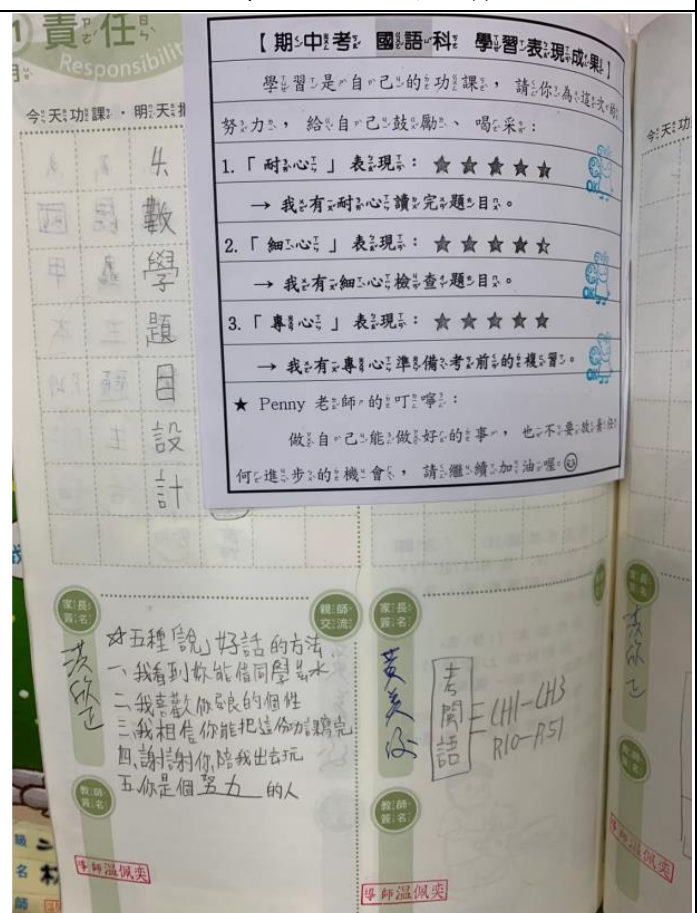 責任
Responsibilit
今天功課，明天
4.
數
學
題
目
設
計
【期中考 國語科 學習表現成果】
學習是自己的功課，請你為這次的
努力，給自己鼓勵、喝采：
1.「耐心」表現：★★★★★
→ 我有耐心讀完題目。
2.「細心」表現：★★★★☆
→ 我有細心檢查題目。
3.「專心」表現：★★★★★
→ 我有專心準備考前的複習。
★ Penny 老師的叮嚀：
做自己能做好的事，也不要放棄任
何進步的機會，請繼續加油喔☺
今天功
家長簽名
親師交流
☆五種「說」好話的方法
一、我看到妳能借同學
二、我喜歡你
的個性
三、我相信你能把這份功課寫完
四、謝謝你陪我出去玩
五、你是個努力的人
教師簽名
導師溫佩奕
家長簽名
考閩語
CH1-CH3
R10-R51
教師簽名
導師溫佩奕
家長簽名
教師簽名
導師溫佩奕
級
名
師